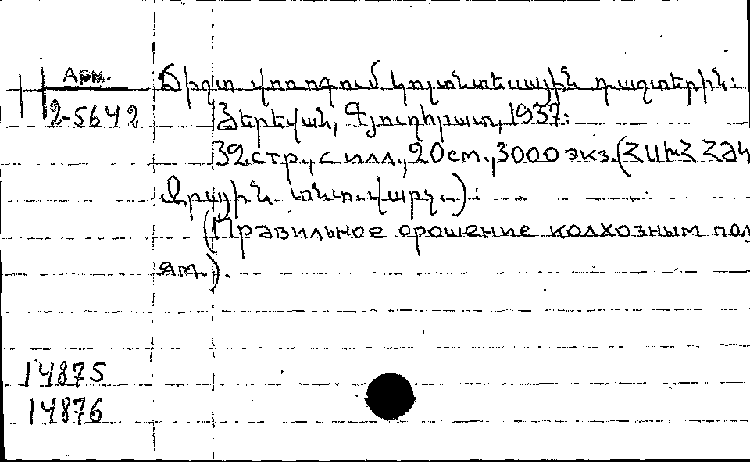 Арм.
2-5642
Ճիշտ վոռոգում կոլտնտեսային դաշտերին:
Յերեվան, Գյուղհրատ, 1937:
32 стр., с илл., 20 см., 3000 экз. (ՀՍԽՀ ՀԺԿ
Ջրային տնտ. վարչ.):
(Правильное орошение колхозным пол
ям.).
14875
14876